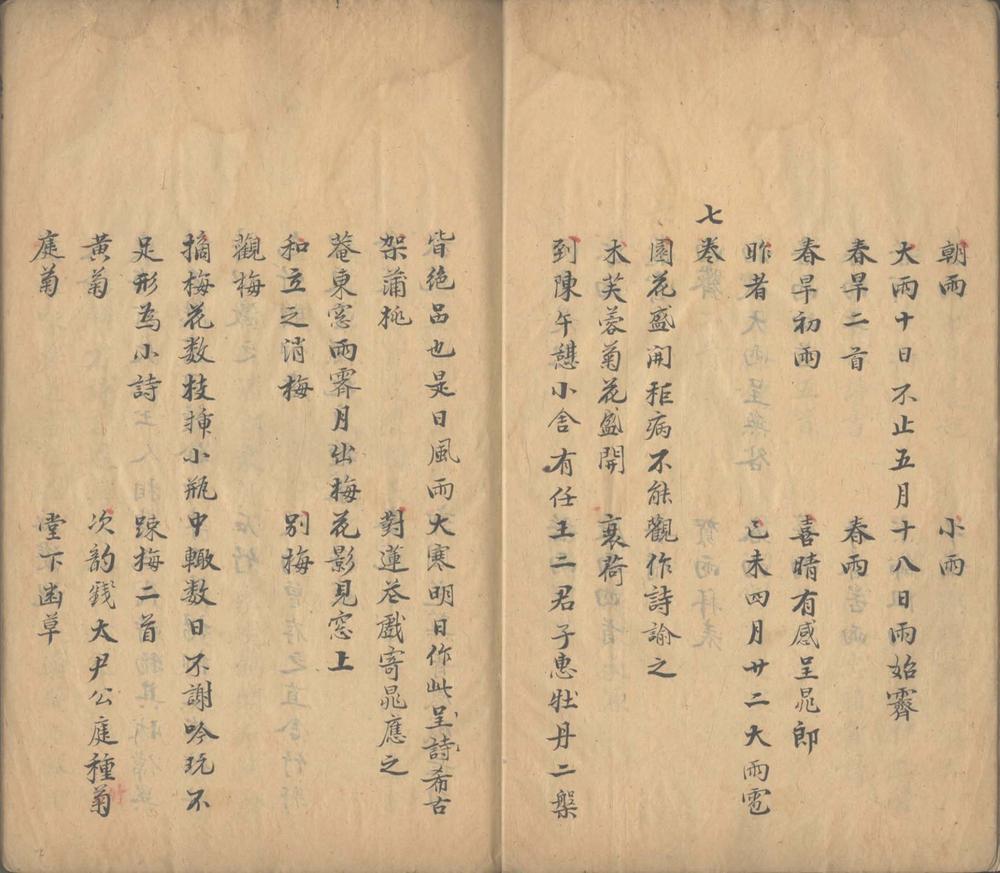 朝雨 小雨
大雨十日不止五月十八日雨始霽
春旱二首 春雨
春旱初雨 喜晴有感呈晁郎
昨者大雨呈無咎 己未四月廿二大雨雹
七卷
園花盛開拒病不能觀作詩諭之
木芙蓉菊花盛開 衰荷
到陳午憇小舍有任王二君子惠牡丹二槃
皆絶品也是日風雨大寒明日作此呈詩希古
架蒲桃 對蓮花戲寄晁應之
菴東窓雨霽月出梅花影見窓上
和立之消梅 别梅
觀梅
摘梅花数枝揷小瓶中輙数日不謝吟玩不
足形為小詩 踈梅二首
黄菊 次韵錢大尹公庭種菊
庭菊 堂下幽草